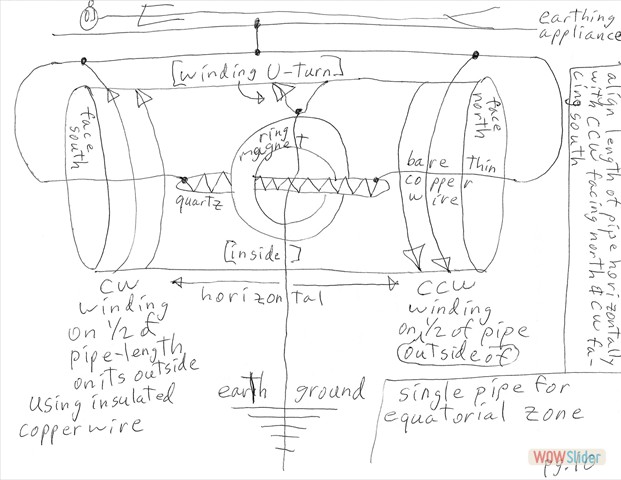 earthing
appliance
[winding U-Turn]
face
south
face
north
ring
magnet
bare thin
copper
wire
quartz
[inside]
horizontal
CW
winding
on 1/2 of
pipe-length
on its outside
using insulated
copper wire
CCW
winding
on 1/2 of pipe
outside of
earth ground
align length of pipe horizontally
with CCW facing north & CW fa-
cing south
single pipe for
equatorial zone
WOWSlider
pg. 10